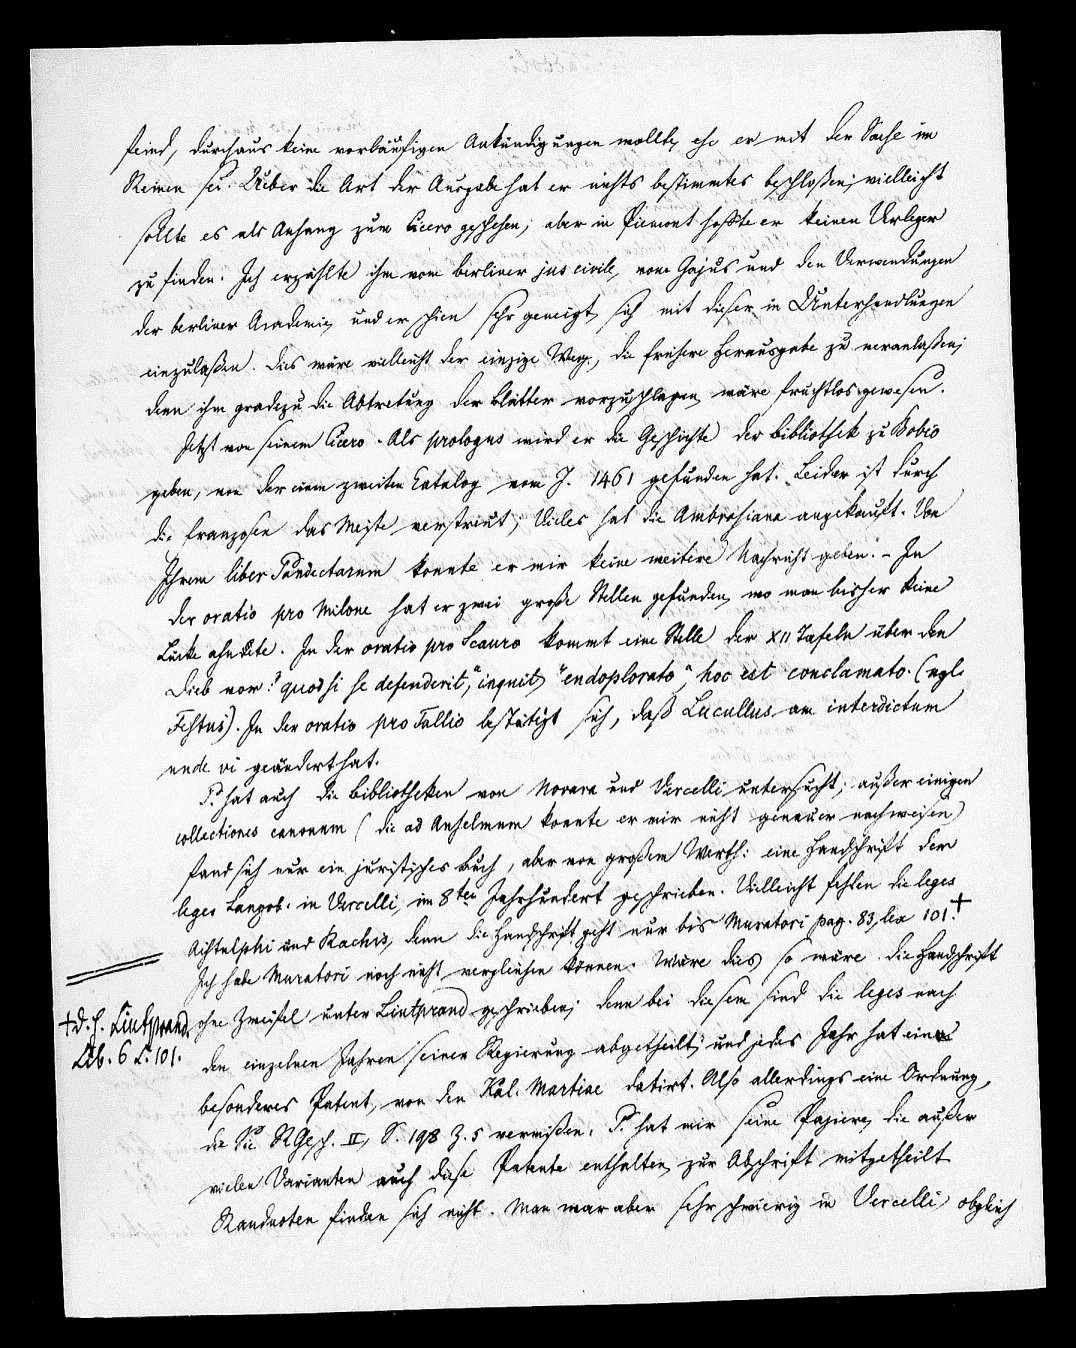 feind, durchaus keine vorläufigen Ankündigungen wollte, ehe er mit der Sache im
Reinen sei. Ueber die Art der Ausgabe hat er nichts bestimmtes beschloßen; vielleicht
sollte es als Anhang zum Cicero geschehen; aber in Piemont hoffte er keinen Verleger
zu finden. Ich erzählte ihm vom berliner jus civile, vom Gajus und den Verwendungen
der berliner Academie, und er schien sehr geneigt, sich mit dieser in Unterhandlungen
einzulaßen. Dies wäre vielleicht der einzige Weg, die frühere Herausgabe zu veranlaßen;
denn ihm gradezu die Abtretung der Blätter vorzuschlagen, wäre fruchtlos gewesen.
Jetzt von seinem Cicero. Als prologus wird er die Geschichte der Bibliothek zu Bobio
geben, von der einen zweiten Catalog vom J. 1461 gefunden hat. Leider ist durch
die Franzosen das Meiste verstreut; Vieles hat die Ambrosiana angekauft. Von
Ihrem liber Pandectarum konnte er mir keine weitere Nachricht geben. – In
der oratio pro Milone hat er zwei große Stellen gefunden, wo man bisher keine
Lücke ahndete. In der oratio pro Scauro kommt eine Stelle der XII Tafeln über den
Dieb vor: "quod si se defenderit," inquit, "endoplorato" hoc est conclamato. (vgl.
Festus). In der oratio pro Tullio bestätigt sich, daß Lucullus am interdictum
unde vi geändert hat.
P. hat auch die Bibliotheken von Novara und Vercelli untersucht; außer einigen
collectiones canonum (die ad Anselmum konnte er mir nicht genauer nachweisen)
fand sich nur ein juristisches Buch, aber von großem Werth: eine Handschrift der
leges Langob. in Vercelli, im 8ten Jahrhundert geschrieben. Vielleicht fehlen die leges
Aistulphi und Rachis, denn die Handschrift geht nur bis Muratori pag. 83, lex 101.+
Ich habe Muratori noch nicht vergleichen können. Wäre dies, so wäre die Handschrift
ohne Zweifel unter Liutprand geschrieben; denn bei diesem sind die leges nach
+ d. h. Liutprand.
Lib. 6 L. 101.
den einzelnen Jahren seiner Regierung abgetheilt, und jedes Jahr hat ein
besonderes Patent, von den Kal. Martiae datirt. Also allerdings eine Ordnung,
die Sie RGesch. II, S. 198 Z. 5 vermißen. P. hat mir seine Papiere, die außer
vielen Varianten auch diese Patente enthalten, zur Abschrift mitgetheilt
Randnoten finden sich nicht. Man war aber sehr schwierig in Vercelli, obgleich